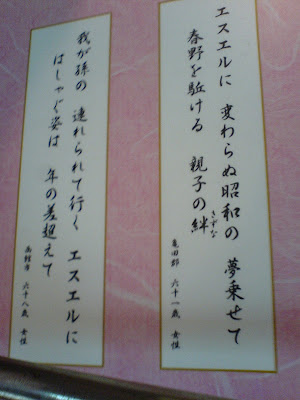 エスエルに 変わらぬ昭和の 夢乗せて
春野を駈ける 親子の絆
きずな
亀田郡 六十一歳 女性
我が孫の 連れられて行く エスエルに
はしゃぐ姿は 年の差超えて
函館市 六十八歳 女性